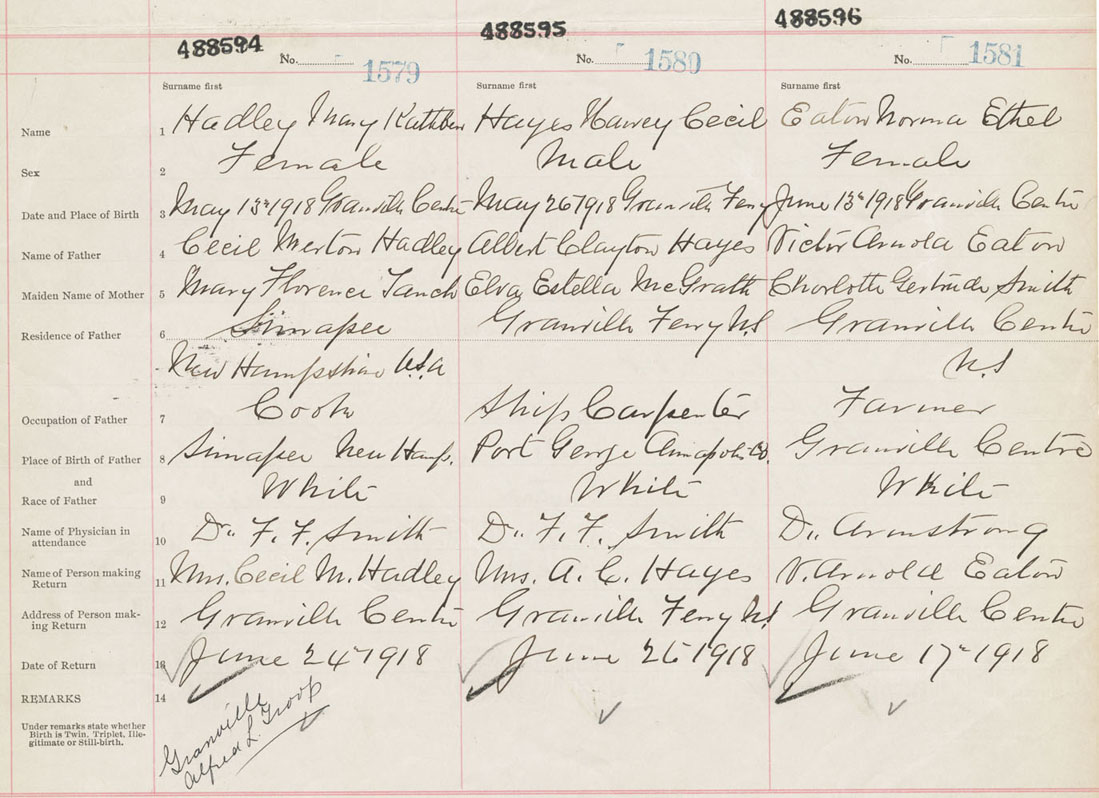 488594 488595 488596
No. 1579 No. 1580 No. 1581
Surname first Surname first Surname first
Name 1 Hadley Mary Kathleen Hayes Harvey Cecil Eaton Norma Ethel
Sex 2 Female Male Female
Date and Place of Birth 3 May 13th 1918 Granville Centre May 26 1918 Granville Ferry June 13th 1918 Granville Centre
Name of Father 4 Cecil Merton Hadley Albert Clayton Hayes Victor Arnold Eaton
Maiden Name of Mother 5 Mary Florence Elva Estella McGrath Charlotte Gertrude Smith
Residence of Father 6 Sunapee Granville Ferry N.S Granville Centre
New Hampshire U.S.A N.S
Occupation of Father 7 Cook Ship Carpenter Farmer
Place of Birth of Father 8 Sunapee New Hamp. Port George Annapolis Co. Granville Centre
and
Race of Father 9 White White White
Name of Physician in
attendance 10 Dr. F. F. Smith Dr. F. F. Smith Dr. Armstrong
Name of Person making
Return 11 Mrs. Cecil M. Hadley Mrs. A. C. Hayes V. Arnold Eaton
Address of Person mak-
ing Return 12 Granville Centre Granville Ferry N.S Granville Centre
Date of Return 13 June 24th 1918 June 26 1918 June 17th 1918
REMARKS 14
Under remarks state whether
Birth is Twin. Triplet, Ille-
gitimate or Still-birth.
Granville
Alfred L. Troop